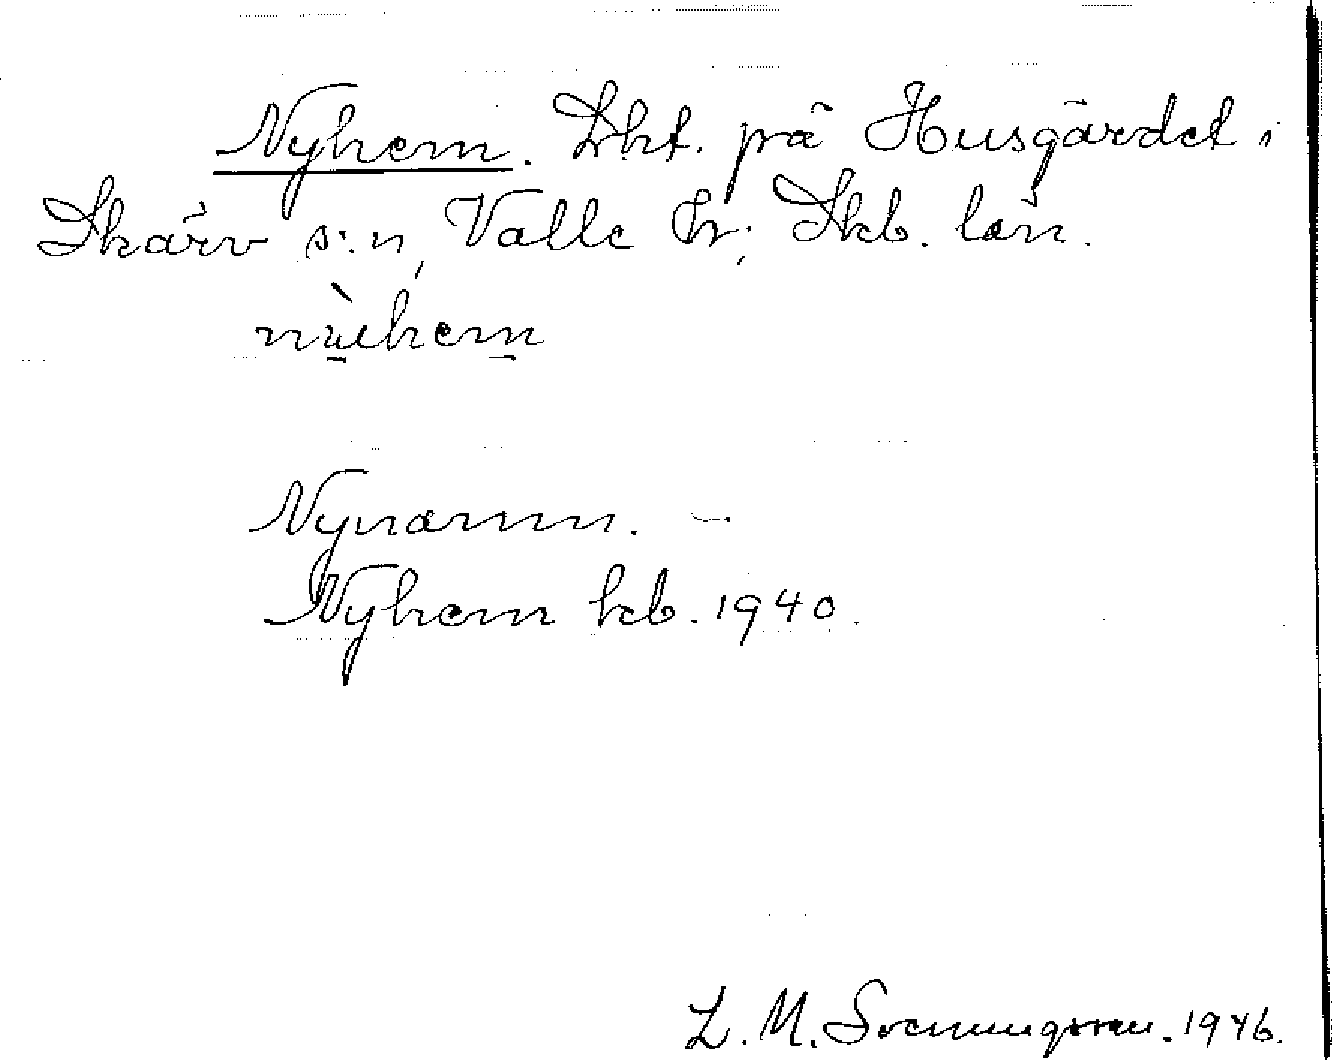 Nyhem. Lht. på Husgärdet i
Skärv s:n, Valle hr; Skb. län.
Nynamn. –
Nyhem kb. 1940.
L. M. Svenungsson. 1946.